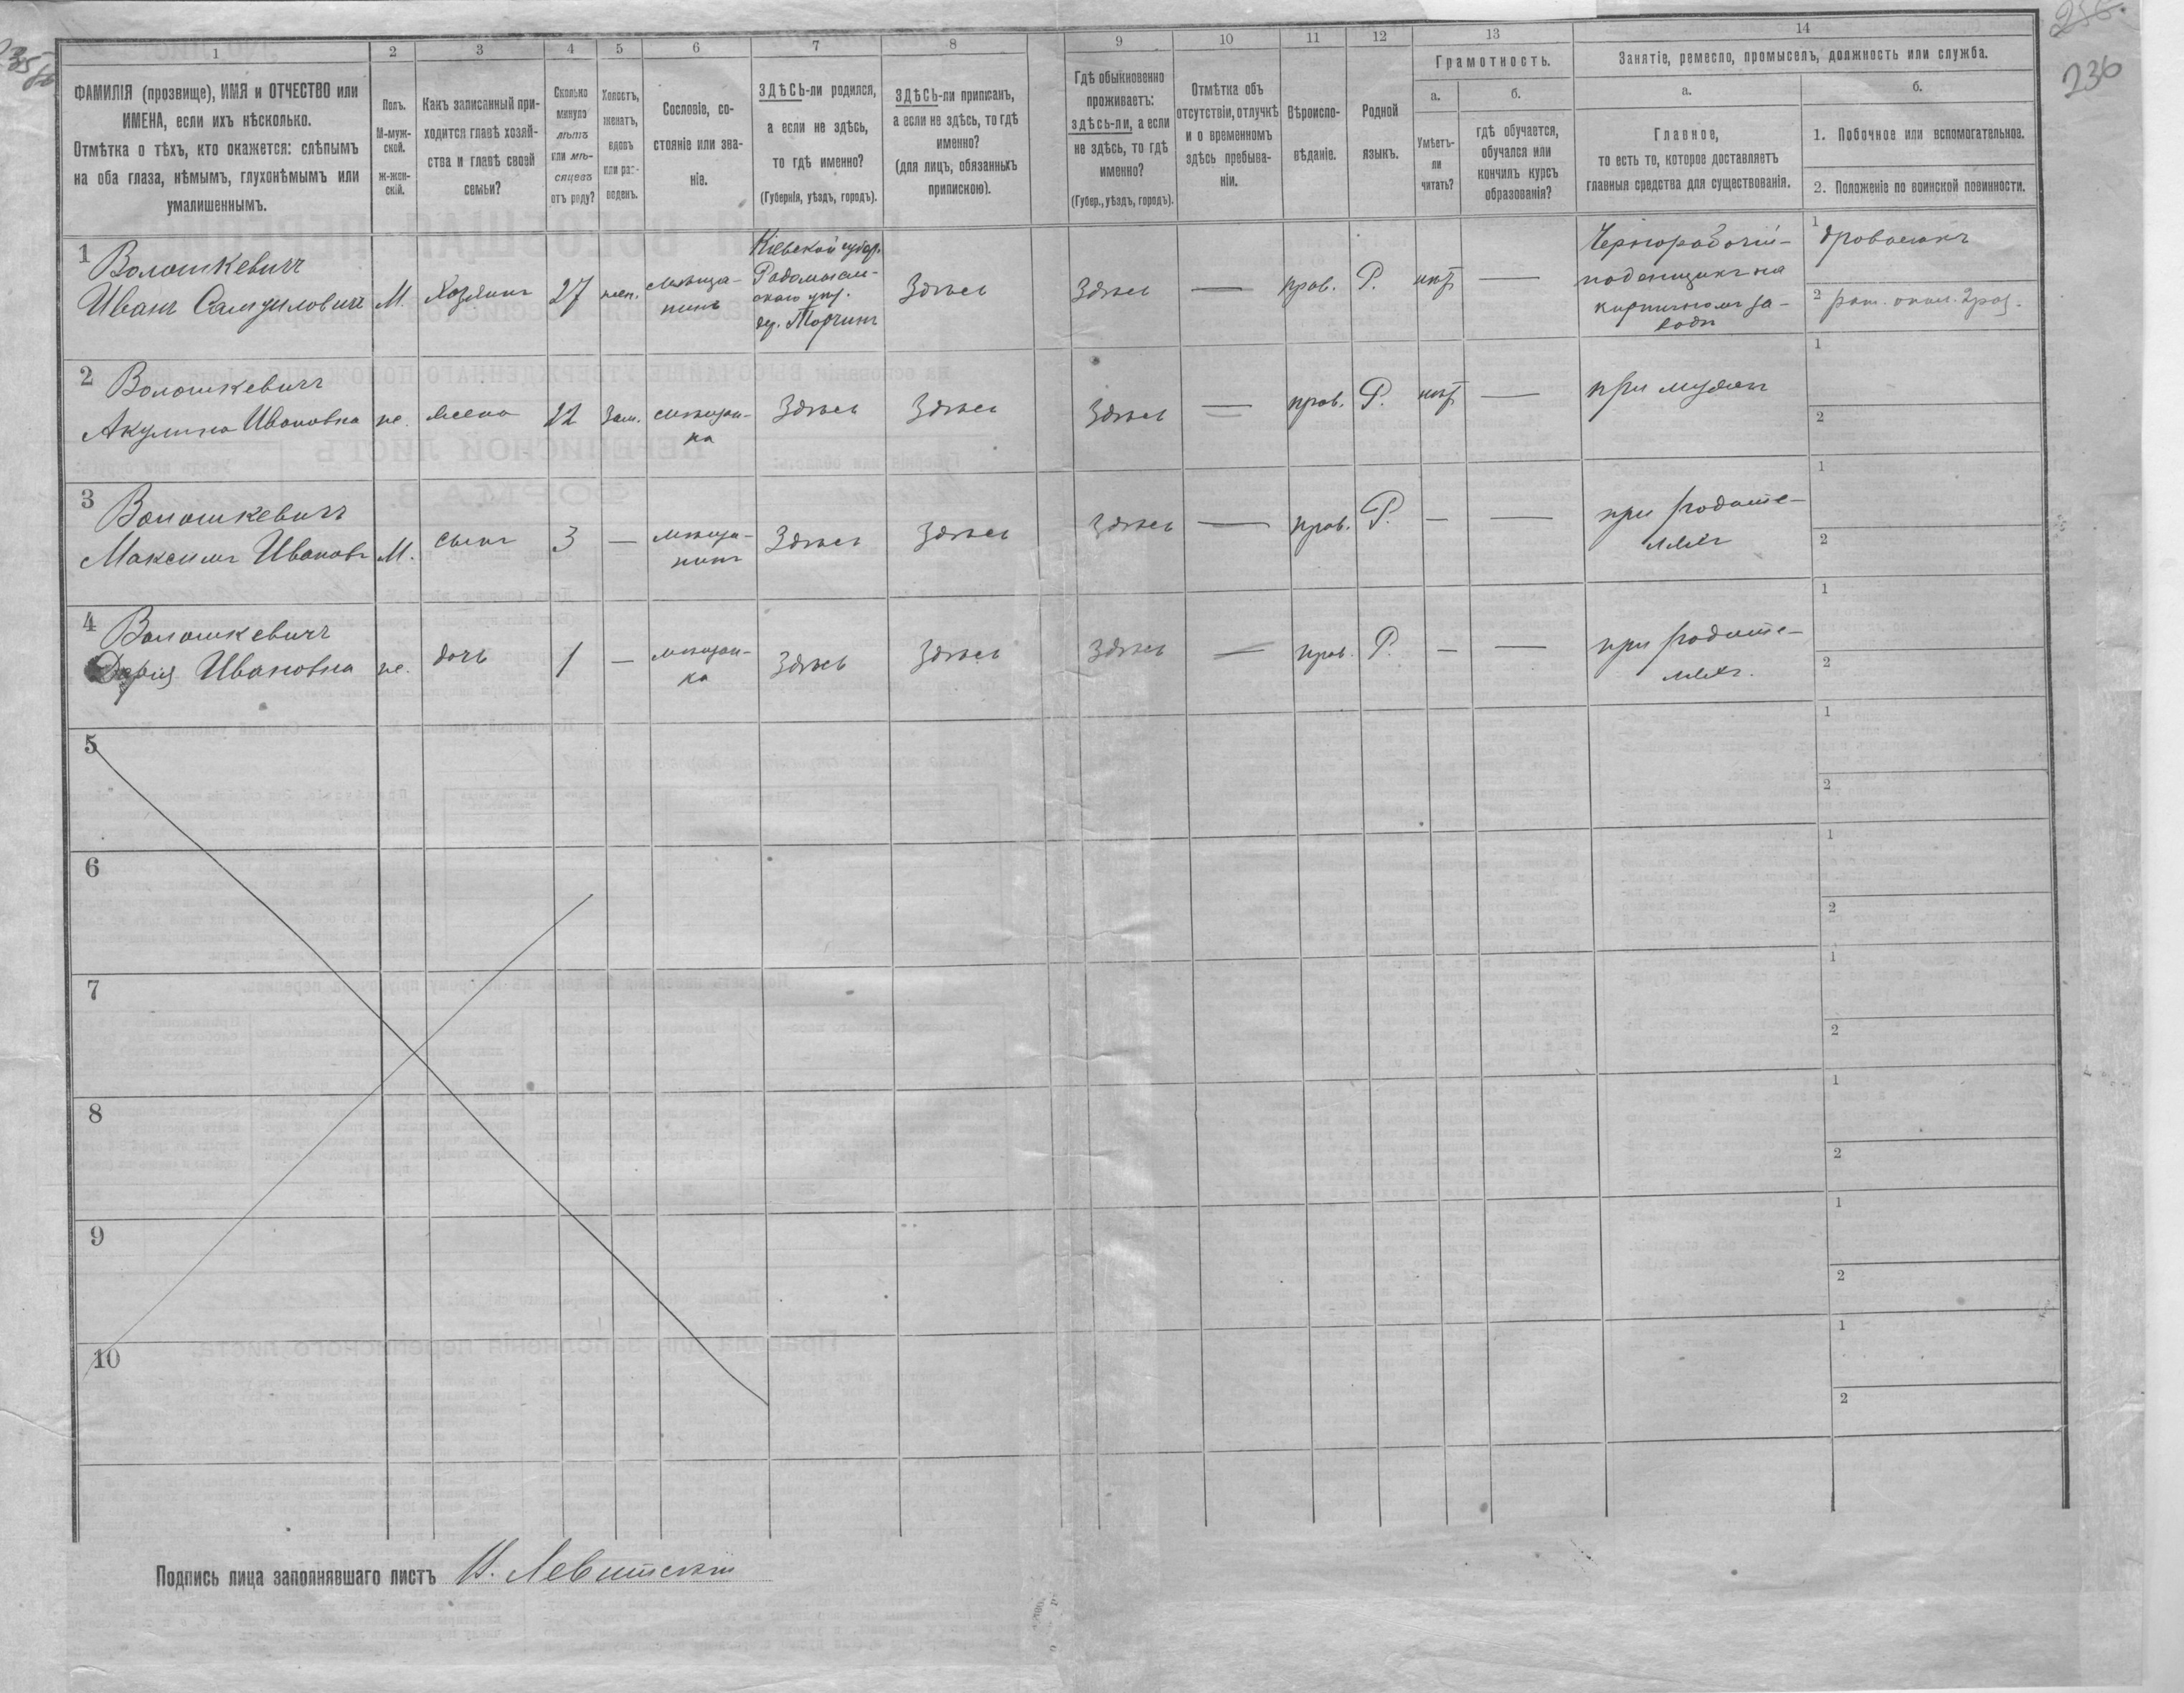 236
1
2
3
4
5
6
7
8
9
10
11
12
13
14
ФАМИЛІЯ (прозвище), ИМЯ и ОТЧЕСТВО или
ИМЕНА, если ихъ нѣсколько.
Отмѣтка о тѣхъ, кто окажется: слѣпымъ
на оба глаза, нѣмымъ, глухонѣмымъ или
умалишеннымъ.
Полъ.
М-муж-
ской.
Ж-жен-
скій.
Какъ записанный при-
ходится главѣ хозяй-
ства и главѣ своей
семьи?
Сколько
минуло
лѣтъ
или мѣ-
сяцевъ
отъ роду?
Холостъ,
женатъ,
вдовъ
или раз-
веденъ.
Сословіе, со-
стояніе или зва-
ніе.
ЗДѢСЬ-ли родился,
а если не здѣсь,
то гдѣ именно?
(Губернія, уѣздъ, городъ).
ЗДѢСЬ-ли приписанъ,
а если не здѣсь, то гдѣ
именно?
(для лицъ, обязанныхъ
припискою).
Гдѣ обыкновенно
проживаетъ:
здѣсь-ли, а если
не здѣсь, то гдѣ
именно?
(Губер., уѣздъ, городъ).
Отмѣтка объ
отсутствіи, отлучкѣ
и о временномъ
здѣсь пребыва-
ніи.
Вѣроиспо-
вѣданіе.
Родной
языкъ.
Грамотность.
а.
Умѣетъ-
ли
читать?
б.
гдѣ обучается,
обучался или
кончилъ курсъ
образованія?
Занятіе, ремесло, промыселъ, должность или служба.
а.
Главное,
то есть то, которое доставляетъ
главныя средства для существованія.
б.
1. Побочное или вспомогательное.
2. Положеніе по воинской повинности.
1
Волошкевичъ
Иванъ Самуиловичъ
М.
Хозяинъ
27
жен.
мѣща-
нинъ
Кіевской губер.
Радомысль-
скаго уѣз.
дер. Морчинъ
Здѣсь
Здѣсь
—
прав.
Р.
нѣт
—
Чернорабочій-
поденщикъ на
кирпичномъ за-
водѣ
1 дровосѣкъ
2 рат. опол. 2 раз.
2
Волошкевичъ
Акулина Ивановна
ж.
жена
22
Зам.
мѣщан-
ка
Здѣсь
Здѣсь
Здѣсь
—
прав.
Р.
нѣт
—
при мужѣ
1
2
3
Волошкевичъ
Максимъ Ивановъ
М.
сынъ
3
—
мѣща-
нинъ
Здѣсь
Здѣсь
Здѣсь
—
прав.
Р.
—
—
при родите-
ляхъ
1
2
4
Волошкевичъ
Дарія Ивановна
ж.
дочь
1
—
мѣщан-
ка
Здѣсь
Здѣсь
Здѣсь
—
прав.
Р.
—
—
при родите-
ляхъ.
1
2
5
1
2
6
1
2
7
1
2
8
1
2
9
1
2
10
1
2
Подпись лица заполнявшаго листъ Н. Левитскій